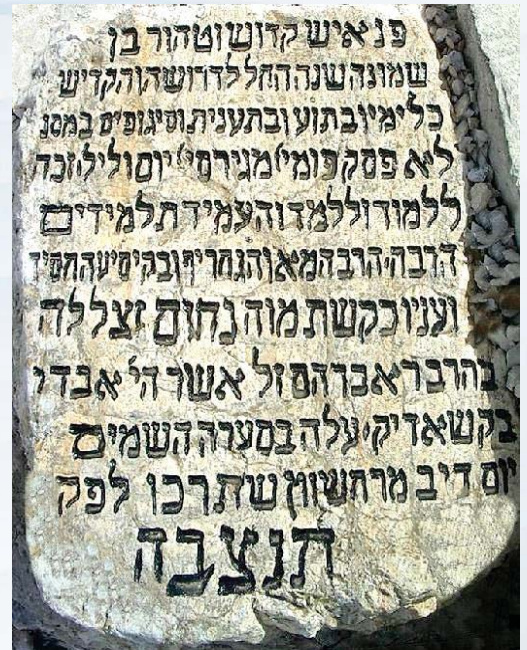 פנ איש קדוש וטהור בן
שמונה שנה החל לדרוש ה והקדיש
כל ימיו בתוע ובתענית וסיגופים במסנ
ליא פסק פומי' מגירסי' יום וליל' וזכה
ללמוד וללמד והעמיד תלמידים
הרבה הרב המאוהג חריף ובקי סיע החסיד
ועניו כקשת מוה נחום זצללה
בהרב ר אברהם זל אשר הי' אבדי
בק שאדיק' עלה בסערה השמים
יום דיב מרחשוון שתרכו לפק
תנצבה